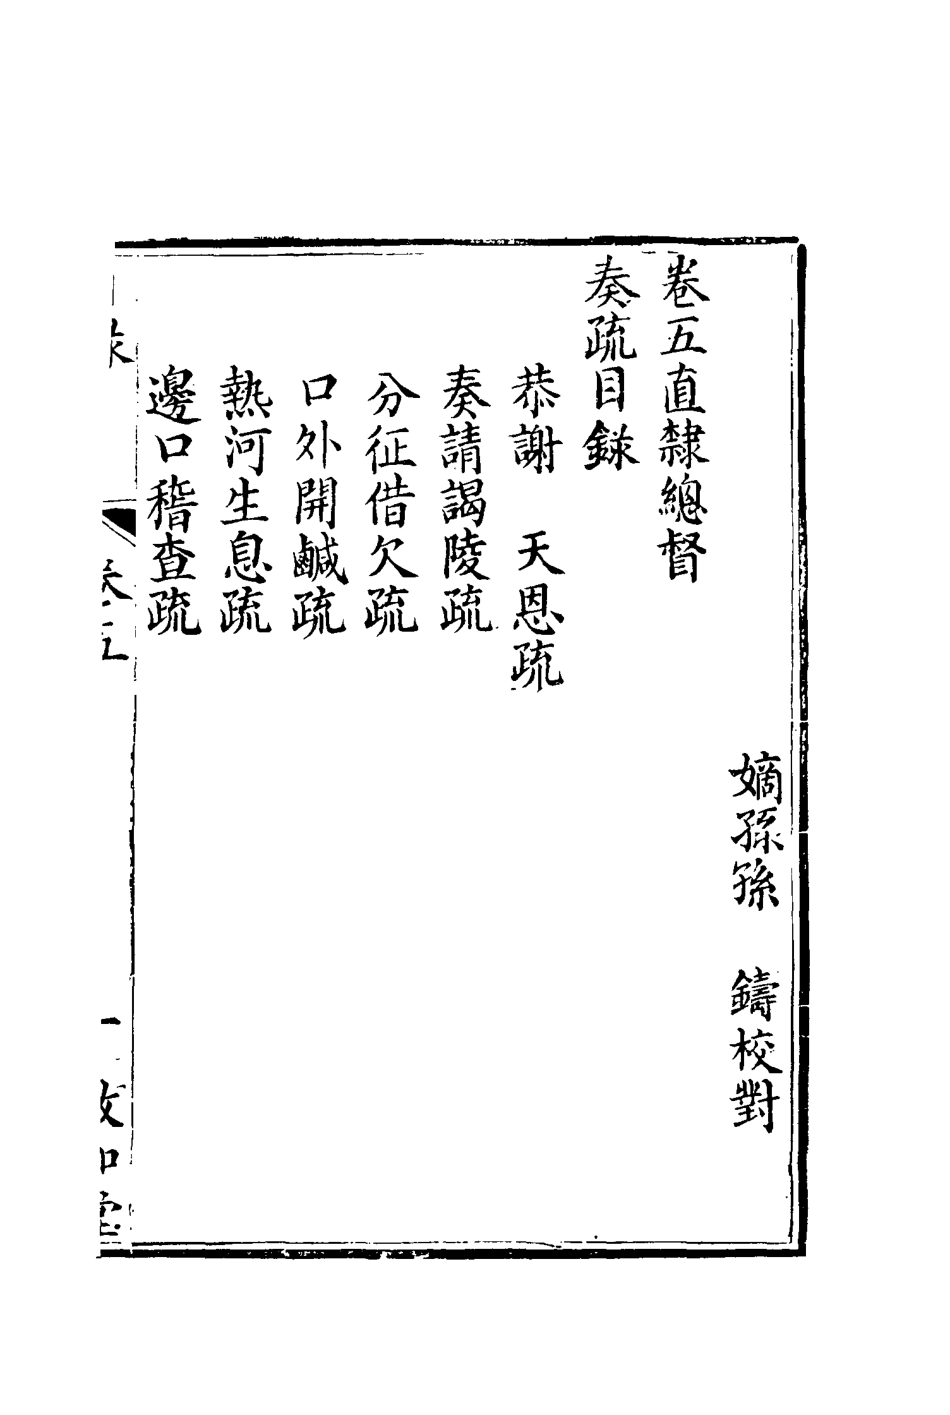 嫡孫孫　鑄校對
卷五直隸總督
奏疏目錄
恭謝　天恩疏
奏請謁陵疏
分征借欠疏
口外開鹹疏
熱河生息疏
邊口稽查疏
卷五
一